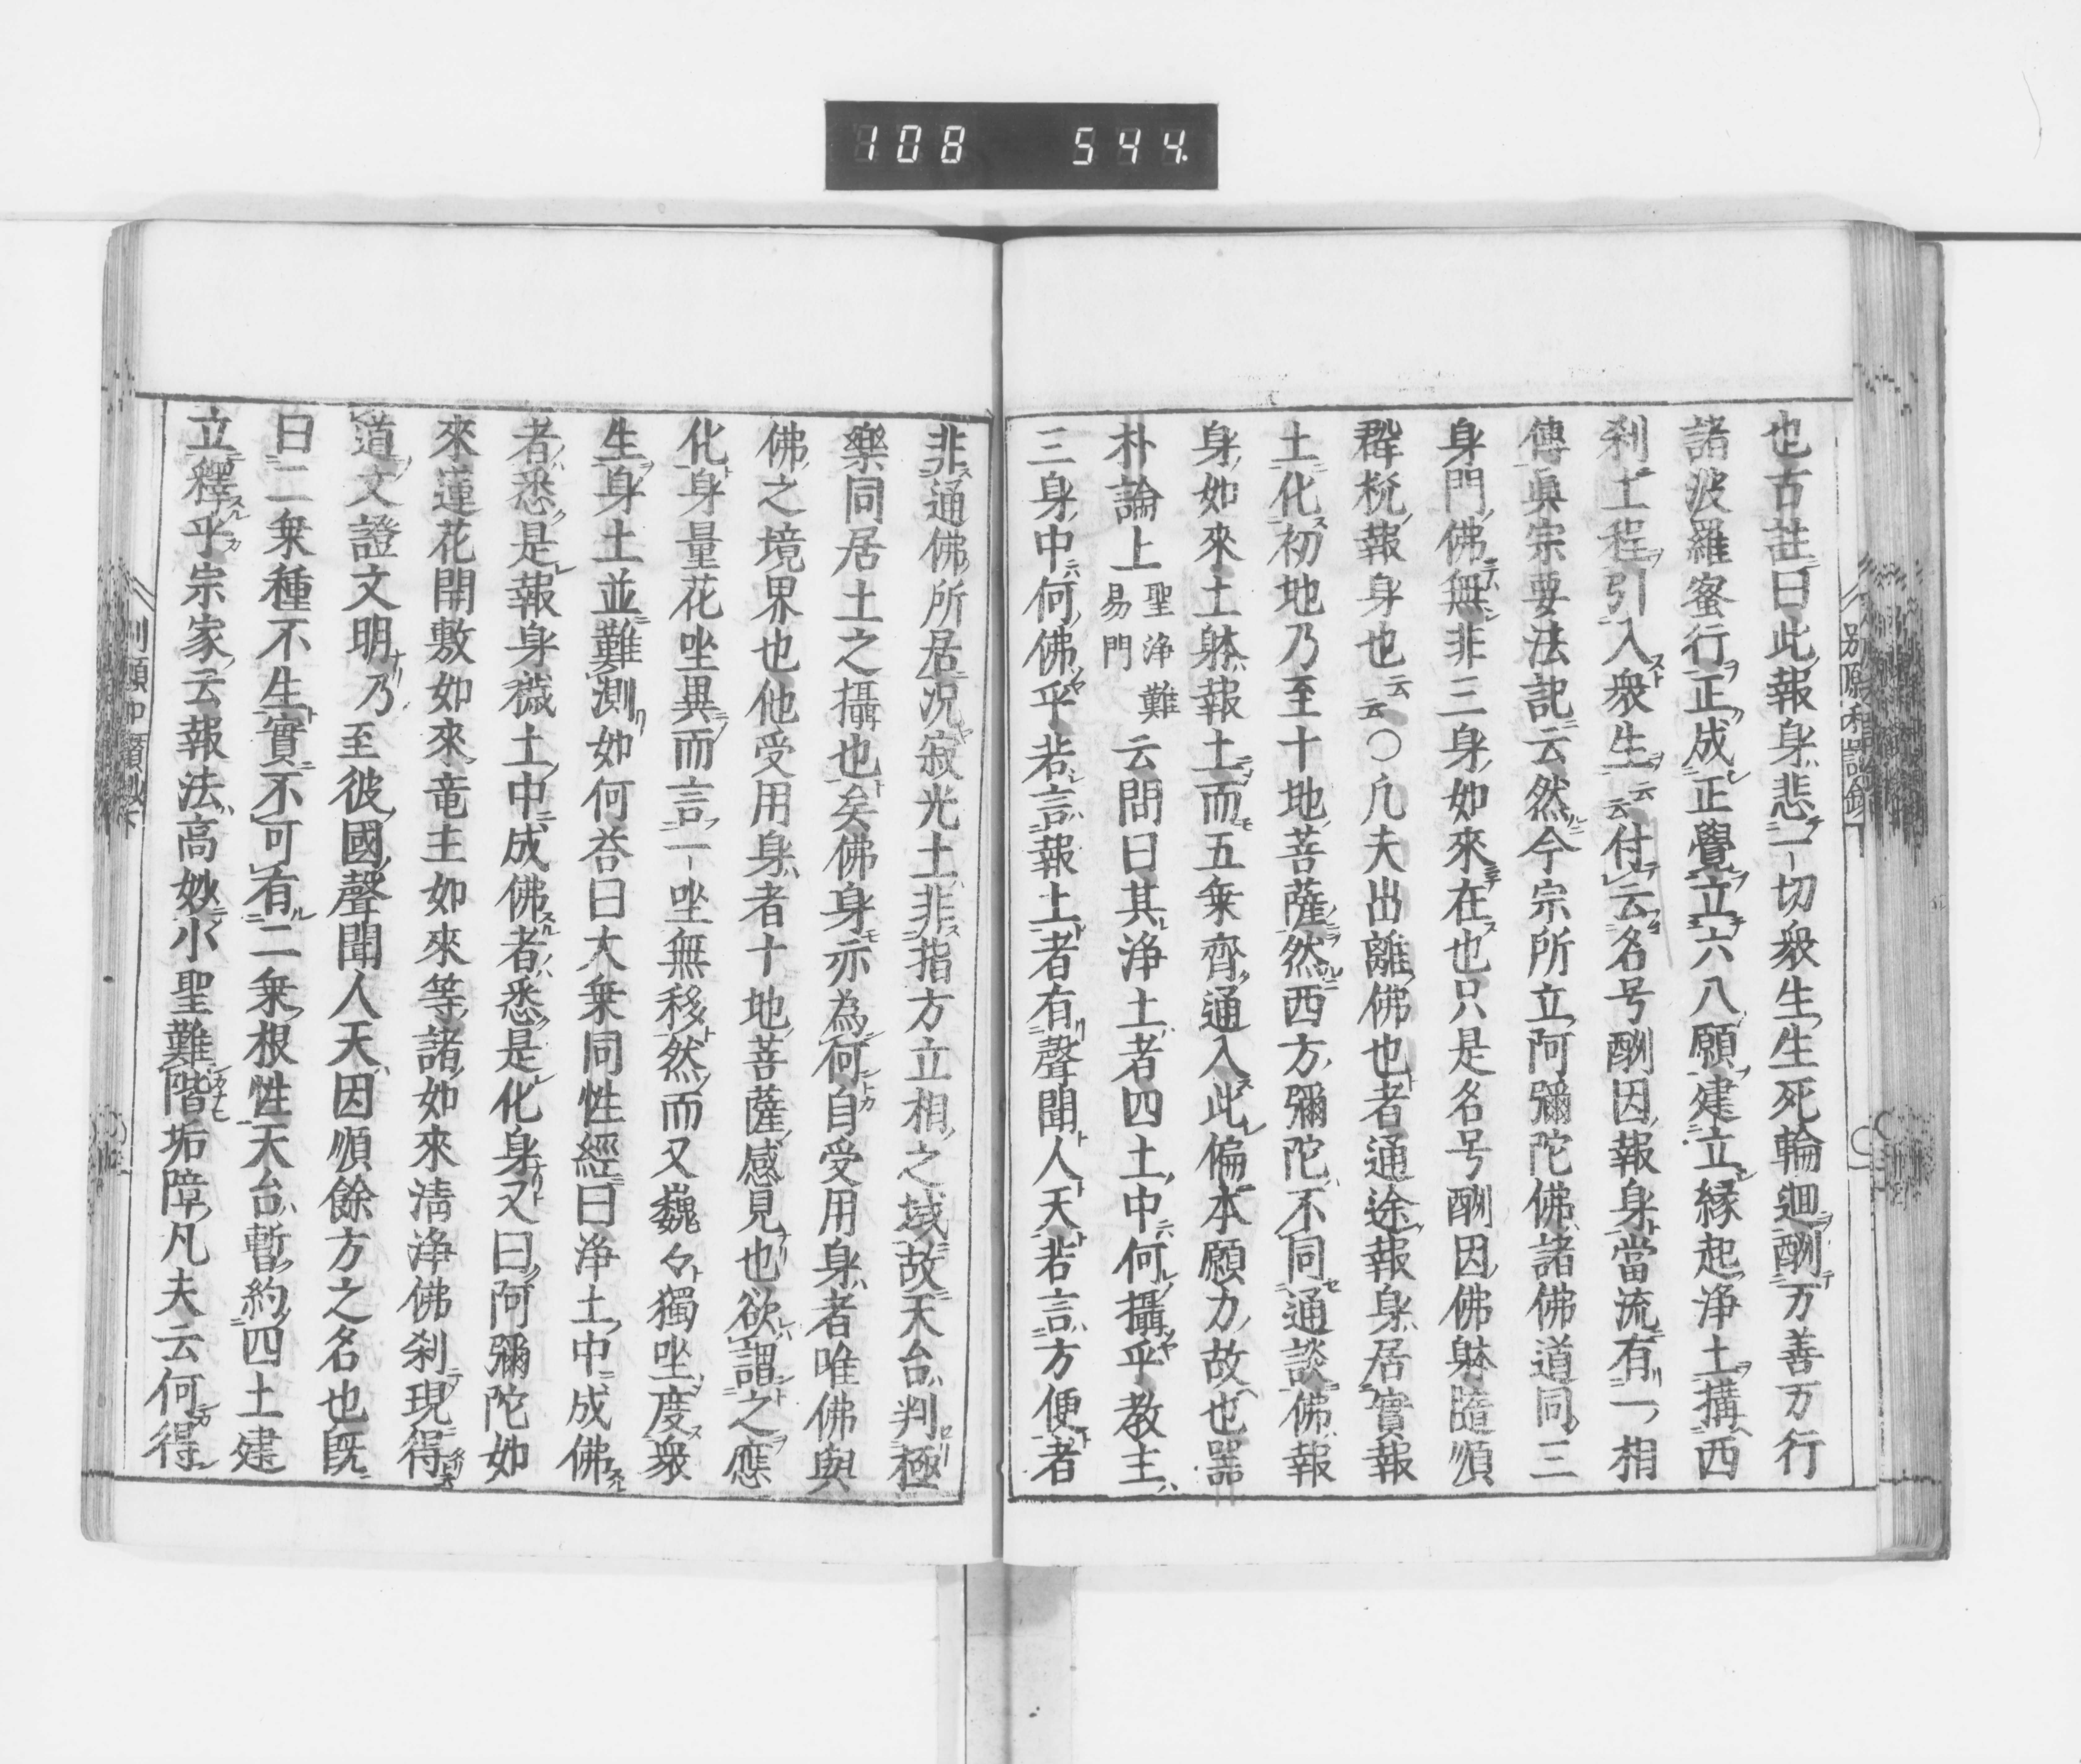 108 544
也古註曰此報身悲一切衆生生死輪廻酬万善万行
諸波羅蜜行正成正覺立六八願建立縁起淨土搆西
刹土程引入衆生云云付云名号酬因報身當流有一相
傳眞宗要法記云然今宗所立阿彌陀佛諸佛道同三
身門佛無非三身如來在也只是名号酬因佛躰隨順
群杭報身也云云〇凡夫出離佛也者通途報身居實報
土化初地乃至十地菩薩然西方彌陀不同通談佛報
身如來土躰報土而五乗齊通入此偏本願力故也噐
朴論上聖淨難易門云問曰其浄土者四土中何攝乎教主
三身中何佛乎若言報土者有聲聞人天若言方便者
非通佛所居况寂光土非指方立相之域故天台判極
樂同居土之攝也矣佛身亦為何自受用身者唯佛與
佛之境界也他受用身者十地菩薩感見也欲謂之應
化身量花坐異而言一坐無移然而又巍々獨坐度衆
生身土並難測如何荅曰大乗同性經曰浄土中成佛
者悉是報身薉土中成佛者悉是化身又曰阿彌陀如
來蓮花開敷如來竜主如來等諸如來淸浄佛刹現得
道文證文明乃至彼國聲聞人天因順餘方之名也既
曰二乗種不生實不可有二乗根性天台暫約四土建
立釋乎宗家云報法高妙小聖難階垢障凡夫云何得